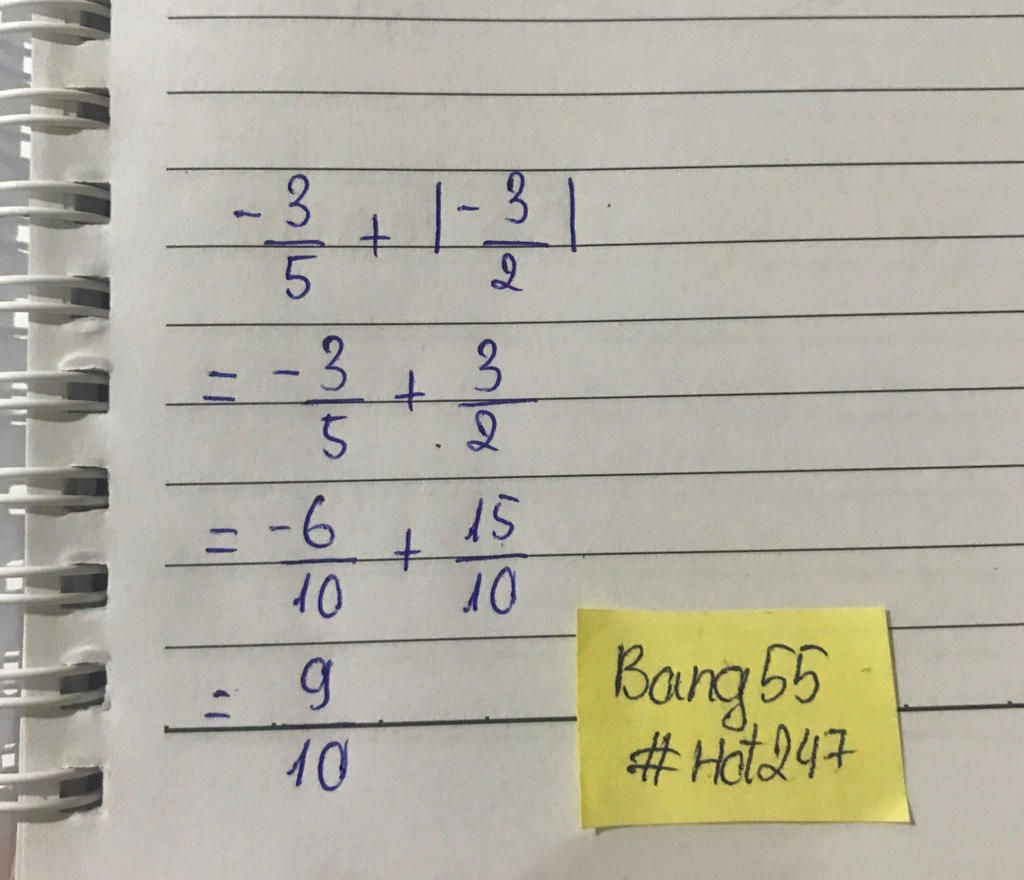 -3/5 + |-3/2|
= -3/5 + 3/2
= -6/10 + 15/10
= 9/10
Bang55
#Hot247